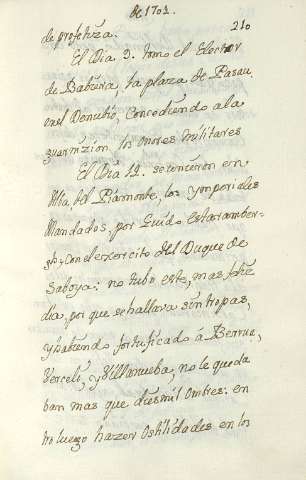 de 1702.
210
de profetiza.
El Dia 9. tomo el Elector
de Babiera, la plaza de Pasau,
en el Danubio, Concediendo a la
guarnizion los onores militares
El Dia 12. se unieron en
Alva del Piamonte, los ymperiales
Mandados, por Guido Estaramber-
go, Con el exercito del Duque de
Saboya: no tubo este, mas feliz
dia, por que se hallava sin tropas,
y habiendo fortificado á Berrua,
Verceli, y Villanueba, no le queda
ban mas que diesmil ombres: en
tro luego hazer Ostilidades en los